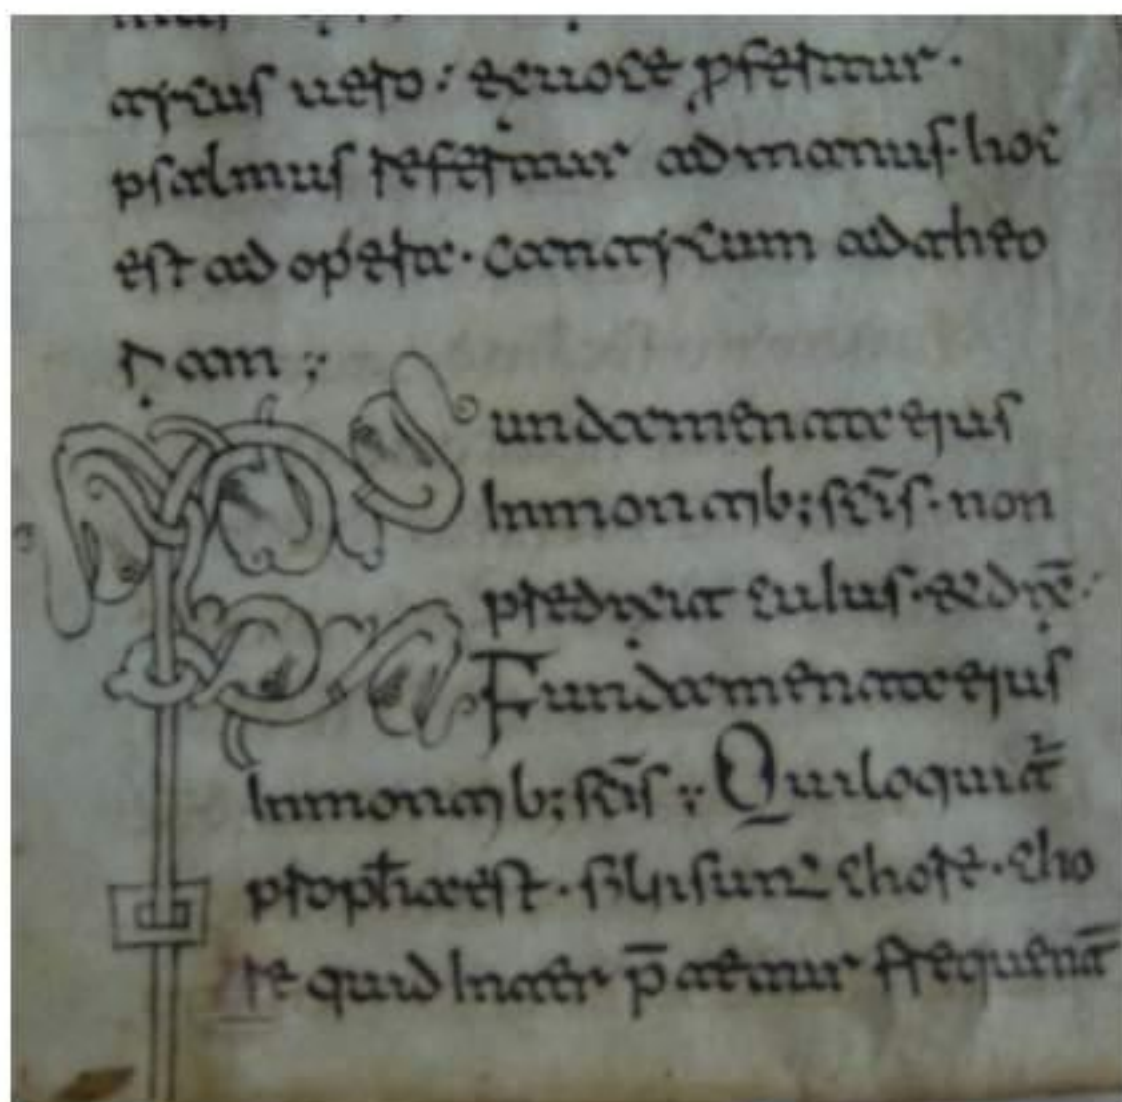 ticus uero : et uoce pfertur ·
psalmus refertur ad manus · hoc
est ad opera · canticum ad theo
riam :
Fundamenta eius
Inmontib; scīs · non
predixit cuius · sed dix̄ :
Fundamenta eius
Inmontib; scīs : Qui loquit̄
propħa est · filii sunt chore · cho
re quid Inter p̄tatur frequent̄